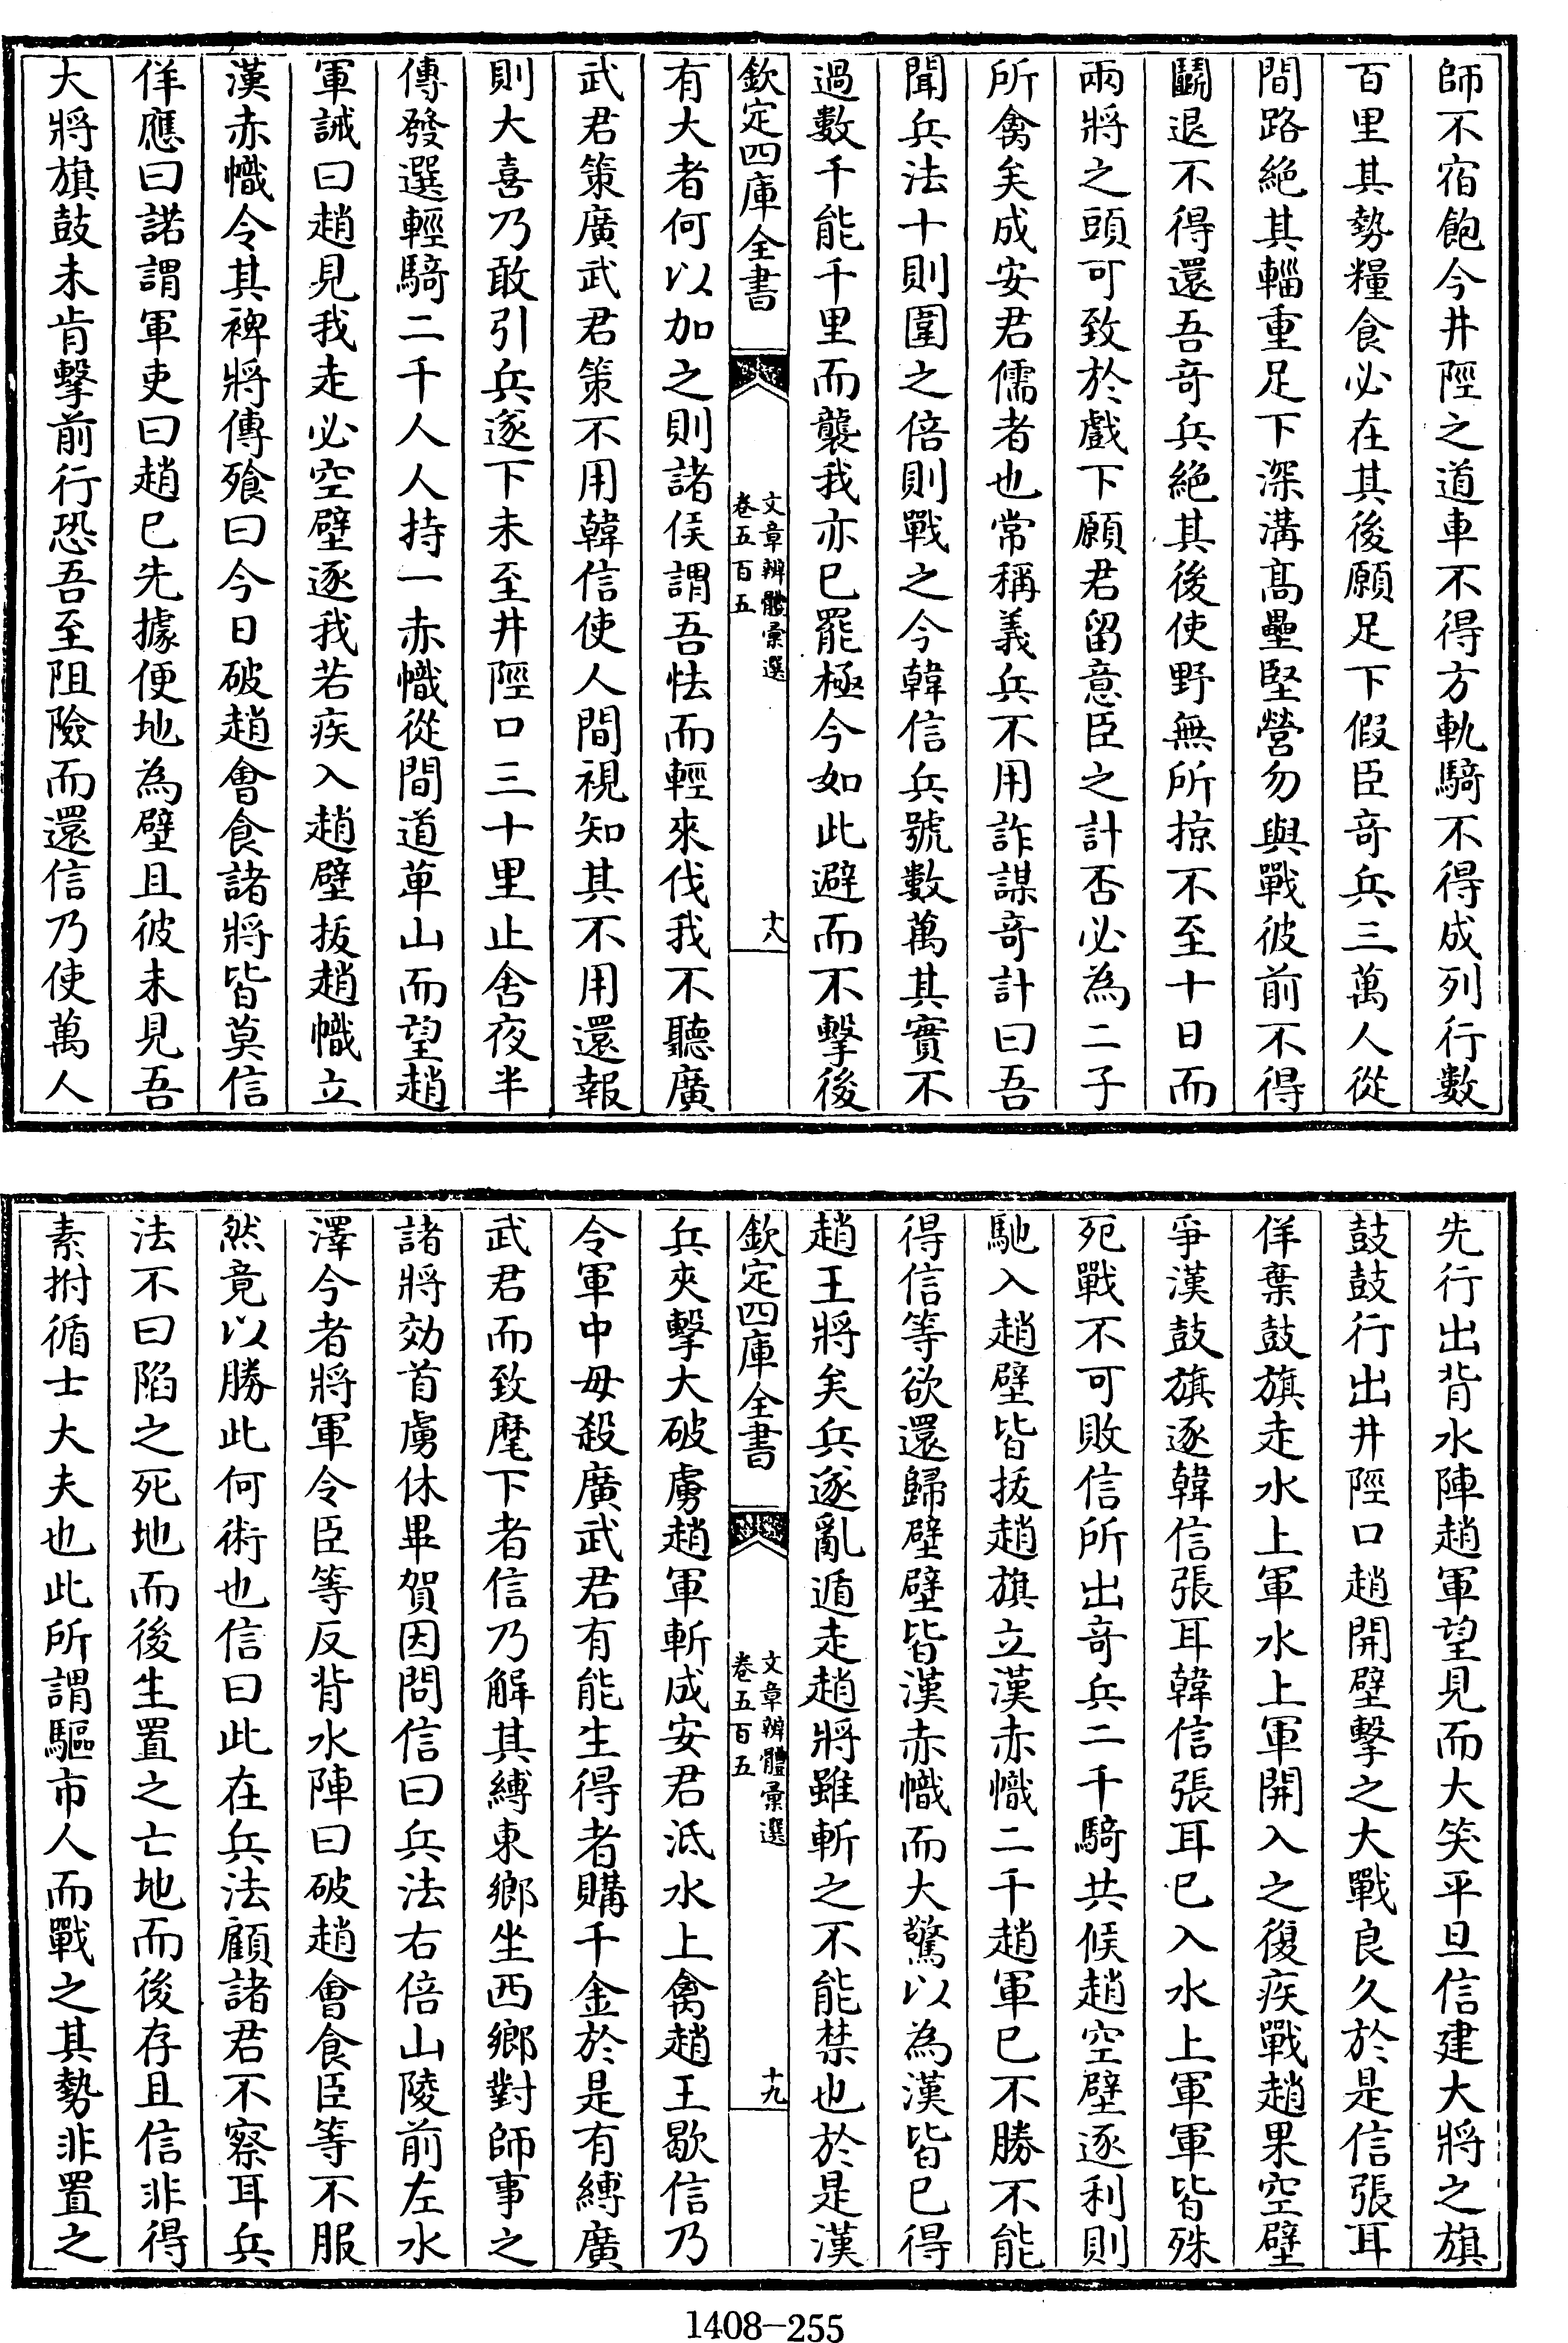 師不宿飽今井陘之道車不得方軌騎不得成列行數
百里其勢糧食必在其後願足下假臣奇兵三萬人從
間路絶其輜重足下深溝髙壘堅營勿與戰彼前不得
鬭退不得還吾奇兵絶其後使野無所掠不至十日而
兩將之頭可致於戲下願君留意臣之計否必為二子
所禽矣成安君儒者也常稱義兵不用詐謀奇計曰吾
聞兵法十則圍之倍則戰之今韓信兵號數萬其實不
過數千能千里而襲我亦已罷極今如此避而不擊後
欽定四庫全書
文章辨體彙選
卷五百五
十八
有大者何以加之則諸侯謂吾怯而輕來伐我不聽廣
武君策廣武君策不用韓信使人間視知其不用還報
則大喜乃敢引兵遂下未至井陘口三十里止舍夜半
傳發選輕騎二千人人持一赤幟從間道萆山而望趙
軍誡曰趙見我走必空壁逐我若疾入趙壁拔趙幟立
漢赤幟令其裨將傳飱曰今日破趙㑹食諸將皆莫信
佯應曰諾謂軍吏曰趙已先據便地為壁且彼未見吾
大將旗鼓未肯擊前行恐吾至阻險而還信乃使萬人
先行出背水陣趙軍望見而大笑平旦信建大將之旗
鼓鼓行出井陘口趙開壁擊之大戰良久於是信張耳
佯棄鼓旗走水上軍水上軍開入之復疾戰趙果空壁
爭漢鼓旗逐韓信張耳韓信張耳已入水上軍軍皆殊
死戰不可敗信所出奇兵二千騎共候趙空壁逐利則
馳入趙壁皆拔趙旗立漢赤幟二千趙軍已不勝不能
得信等欲還歸壁壁皆漢赤幟而大驚以為漢皆已得
趙王將矣兵遂亂遁走趙將雖斬之不能禁也於是漢
欽定四庫全書
文章辨體彙選
卷五百五
十九
兵夾擊大破虜趙軍斬成安君泜水上禽趙王歇信乃
令軍中毋殺廣武君有能生得者購千金於是有縛廣
武君而致麾下者信乃解其縛東鄉坐西鄉對師事之
諸將効首虜休畢賀因問信曰兵法右倍山陵前左水
澤今者將軍令臣等反背水陣曰破趙㑹食臣等不服
然竟以勝此何術也信曰此在兵法顧諸君不察耳兵
法不曰陷之死地而後生置之亡地而後存且信非得
素拊循士大夫也此所謂驅市人而戰之其勢非置之
1408-255